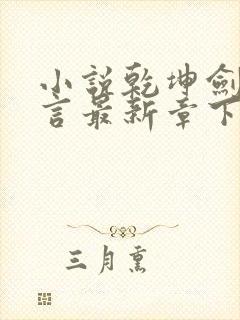 小说乾坤剑
言最新章下
三月熏